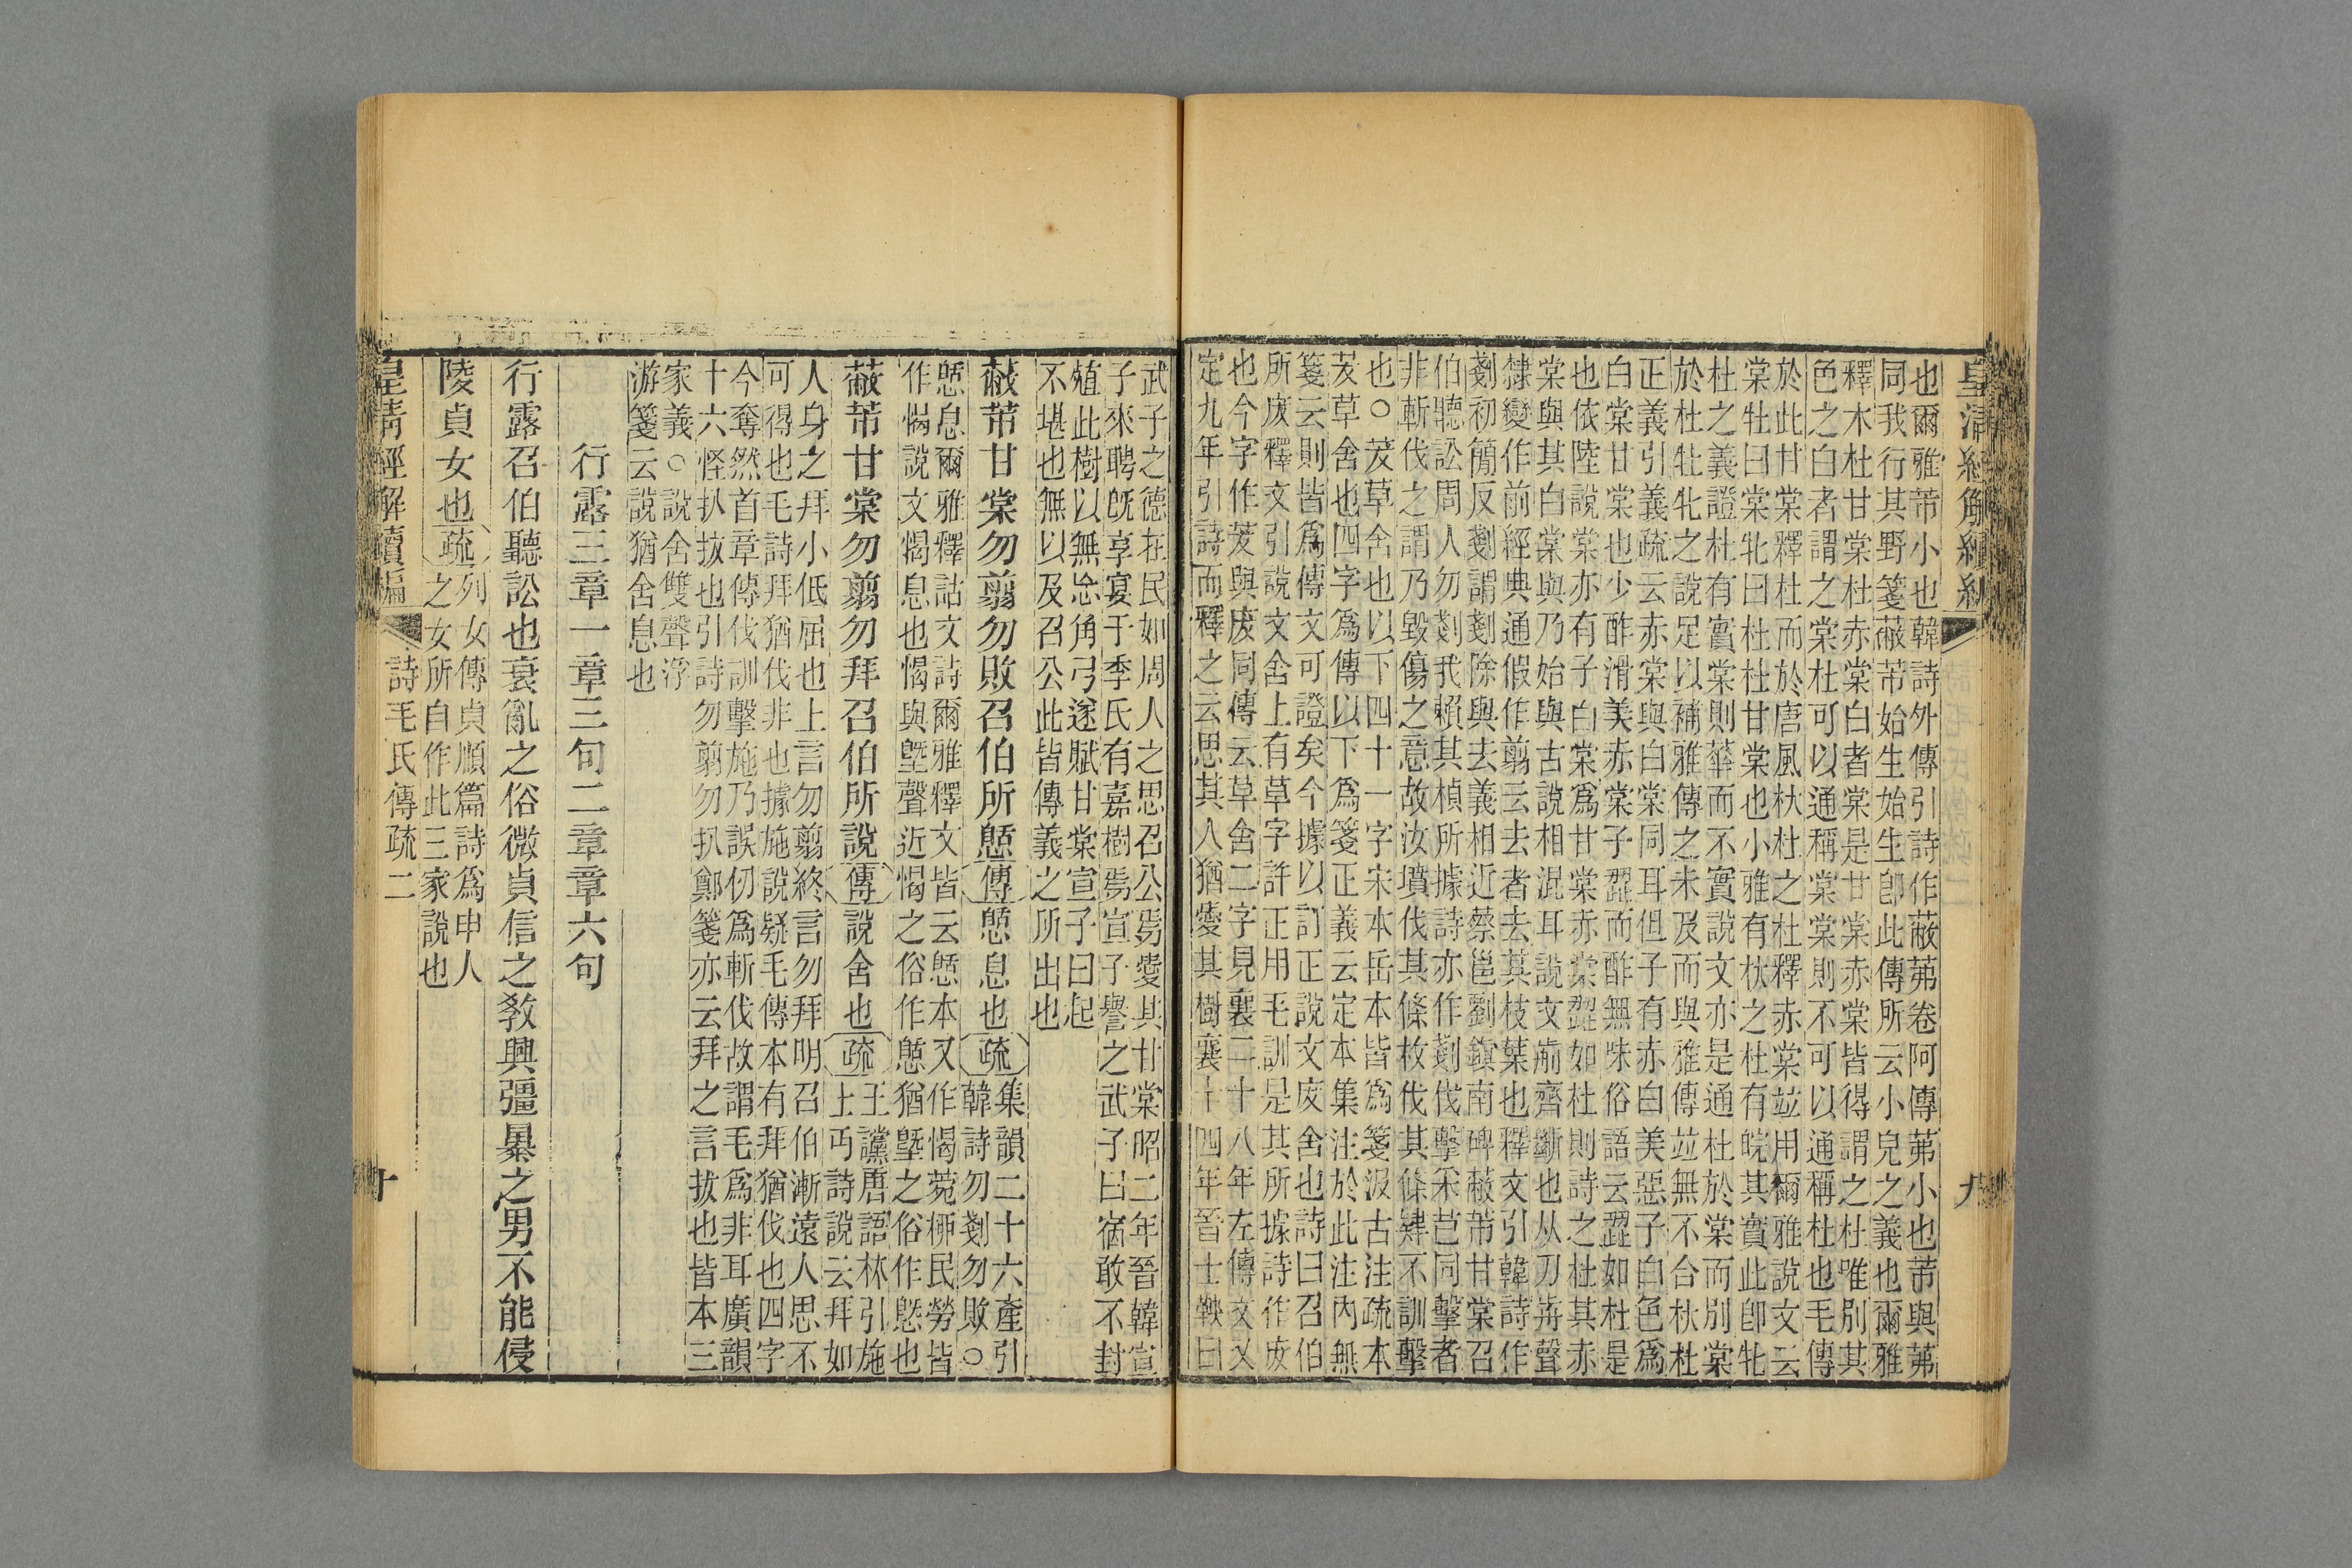 皇清經解續編
九
也爾雅芾小也韓詩外傳引詩作蔽茀卷阿傳茀小也芾與茀
同我行其野箋蔽芾始生始生卽此傳所云小皃之義也爾雅
釋木杜甘棠杜赤棠白者棠是甘棠赤棠皆得謂之杜唯別其
色之白者謂之棠杜可以通稱棠棠則不可以通稱杜也毛傳
於此甘棠釋杜而於唐風杕杜之杜釋赤棠竝用爾雅說文云
棠牡曰棠牝曰杜杜甘棠也小雅有杕之杜有睆其實此卽牝
杜之義證杜有實棠則華而不實說文亦是通杜於棠而別棠
於杜牡牝之說足以補雅傳之未及而與雅傳竝無不合杕杜
正義引義疏云赤棠與白棠同耳但子有赤白美惡子白色爲
白棠甘棠也少酢滑美赤棠子澀而酢無味俗語云澀如杜是
也依陸說棠亦有子白棠爲甘棠赤棠澀如杜則詩之杜其赤
棠與其白棠與乃始與古說相混耳說文前齊斷也从刀歬聲
隸變作前經典通假作翦云去者去其枝葉也釋文引韓詩作
剗初簡反剗謂剗除與去義相近蔡邕劉鎮南碑蔽芾甘棠召
伯聽訟周人勿剗我賴其楨所據詩亦作剗伐擊采芑同擊者
非斬伐之謂乃毀傷之意故汝墳伐其條枚伐其條肄不訓擊
也○茇草舍也以下四十一字宋本岳本皆爲箋汲古注疏本
茇草舍也四字爲傳以下爲箋正義云定本集注於此注內無
箋云則皆爲傳文可證矣今據以訂正說文废舍也詩曰召伯
所废釋文引說文舍上有草字許正用毛訓是其所據詩作废
也今字作茇與废同傳云草舍二字見襄二十八年左傳文又
定九年引詩而釋之云思其人猶愛其樹襄十四年晉士鞅曰
武子之德在民如周人之思召公焉愛其甘棠昭二年晉韓宣
子來聘旣享宴于季氏有嘉樹焉宣子譽之武子曰宿敢不封
殖此樹以無忘角弓遂賦甘棠宣子曰起
不堪也無以及召公此皆傳義之所出也
蔽芾甘棠勿翦勿敗召伯所憩傳憩息也疏集韻二十六產引
韓詩勿剗勿敗○
憩息爾雅釋詁文詩爾雅釋文皆云憩本又作愒菀桺民勞皆
作愒說文愒息也愒與塈聲近愒之俗作憩猶塈之俗作憖也
蔽芾甘棠勿翦勿拜召伯所說傳說舍也疏王讜唐語林引施
士丏詩說云拜如
人身之拜小低屈也上言勿翦終言勿拜明召伯漸遠人思不
可得也毛詩拜猶伐非也據施說疑毛傳本有拜猶伐也四字
今奪然首章傳伐訓擊施乃誤仞爲斬伐故謂毛爲非耳廣韻
十六怪扒拔也引詩勿翦勿扒鄭箋亦云拜之言拔也皆本三
家義○說舍雙聲浮
游箋云說猶舍息也
行露三章一章三句二章章六句
行露召伯聽訟也衰亂之俗微貞信之敎興彊暴之男不能侵
陵貞女也疏列女傳貞順篇詩爲申人
之女所自作此三家說也
皇清經解續編
詩毛氏傳疏二
十